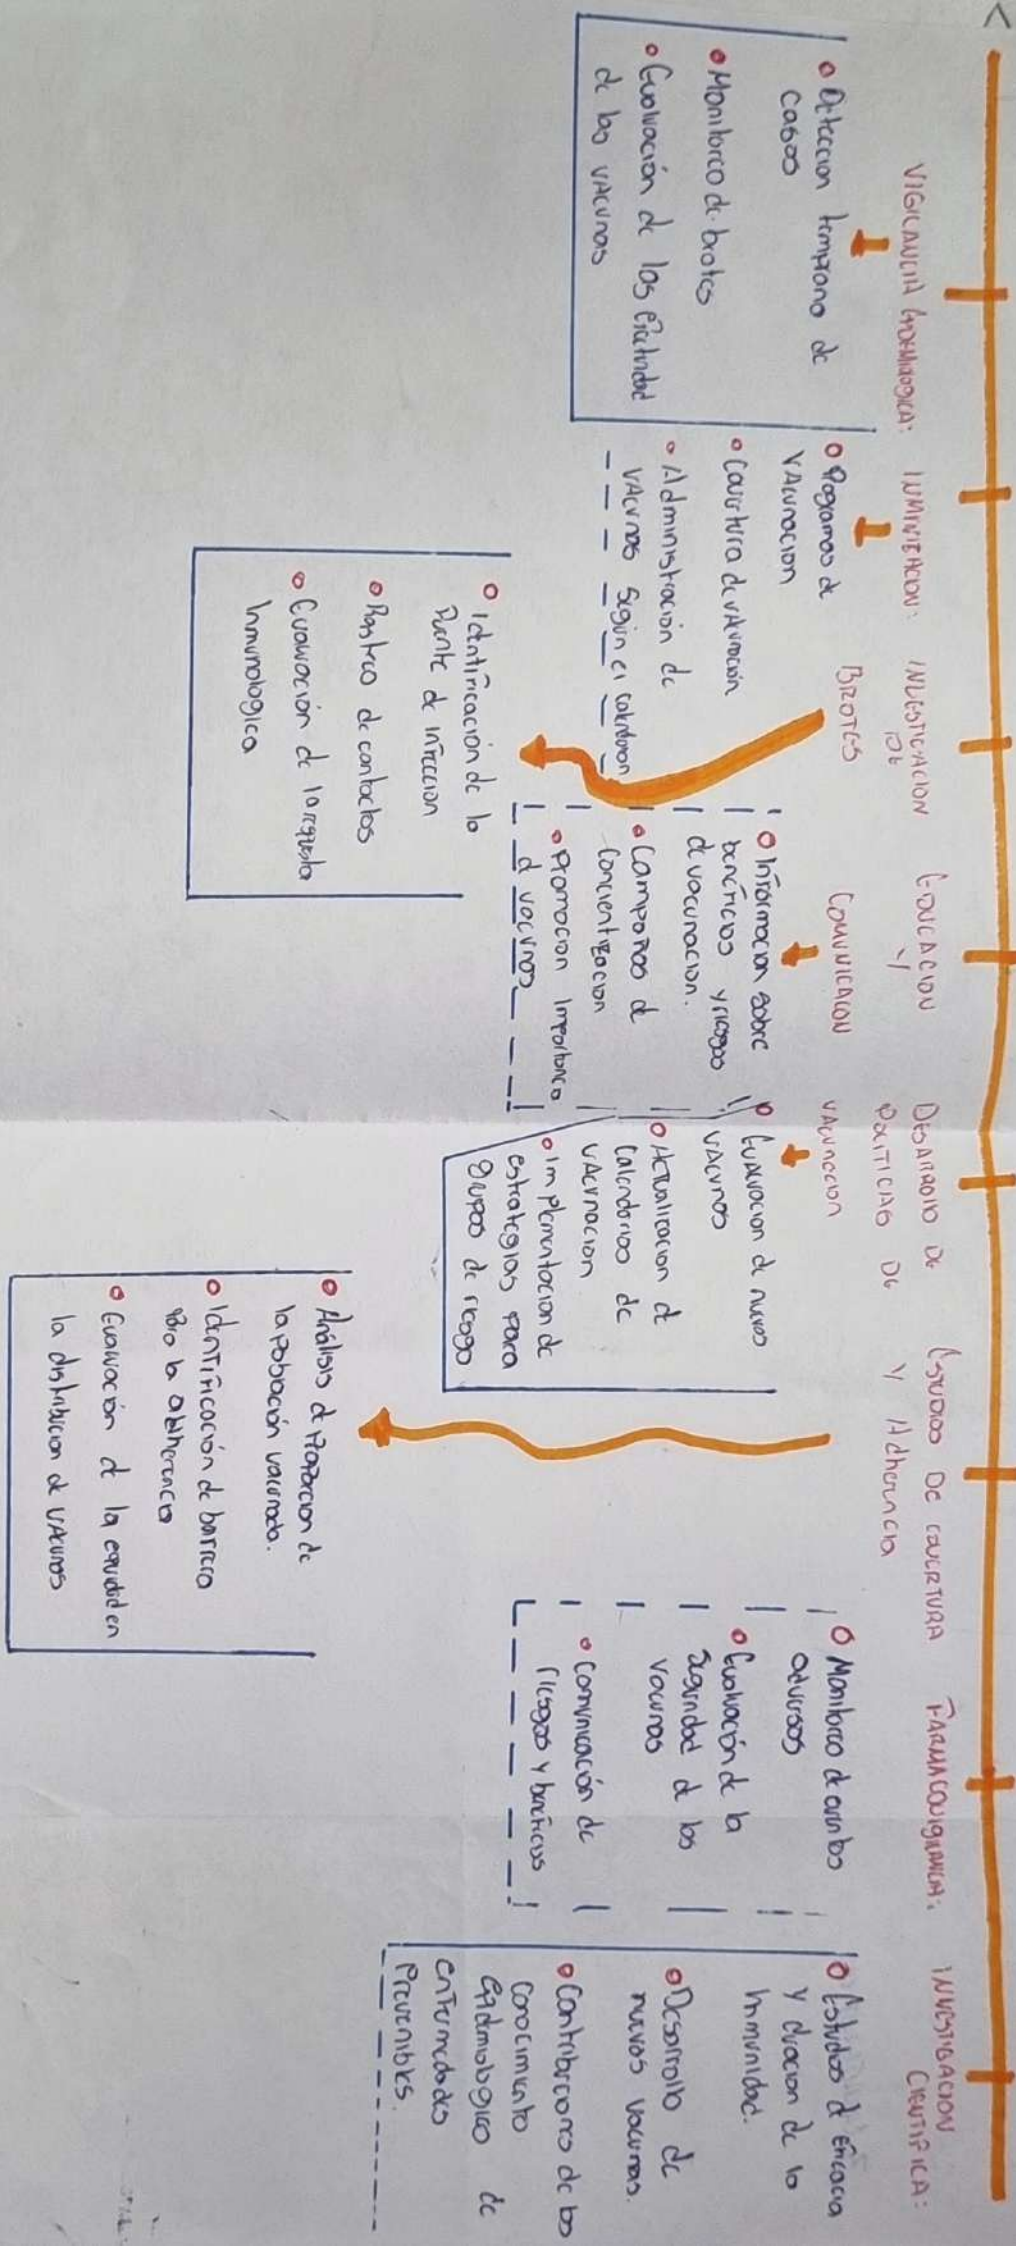 VIGILANCIA EPIDEMIOLOGICA:
Deteccion temprana de
casos
Monitoreo de brotes
Evaluación de las efectividad
de las vacunas
INMUNIZACION:
Programas de
vacunacion
Covertura de vacunación
Administración de
vacunas según el calendario
INVESTIGACION
DE
BROTES
Identificación de la
fuente de infeccion
Rastreo de contactos
Evaluación de la respuesta
Inmunologica
EDUCACION
Y
COMUNICACION
Informacion sobre
beneficios y riesgos
de vacunacion.
Campañas de
Concientizacion
Promocion Importancia
d vacunas
DESARROLLO DE
POLITICAS DE
VACUNACION
Evaluacion de nuevas
vacunas
Actualizacion d
Calendarios de
vacunacion
Implementacion de
estrategias para
grupos de riesgo
Estudios De COVERTURA
Y Adherencia
Análisis d proporcion de
la población vacunada.
Identificación de barrera
para la adherencia
Evaluación d la equidad en
la distribucion d vacunas
FARMACOVIGILANCIA:
Monitoreo d eventos
adversos
Evaluación de la
seguridad d las
vacunas
Comunicación de
riesgos y beneficios
INVESTIGACION
CIENTIFICA:
Estudios d eficacia
y duracion de la
Inmunidad.
Desarrollo de
nuevas vacunas.
Contribuciones de los
Conocimiento
Epidemiologico de
enfermedades
Prevenibles.